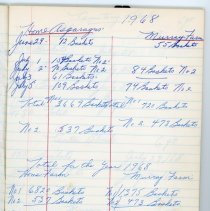 1968
Home Asparagus Murray Farm
June 29 - 12 Baskets 55 Baskets
July 1 - Baskets No 2
July 2 Baskets No 2 84 Baskets No 2
July 3 61 Baskets
July 5 169 Baskets 74 Baskets No 2
Total No 1 3669 Baskets Total No 1 720 Baskets
No 2 537 Baskets No 2 473 Baskets
Total for the Year 1968
Home Farm Murray Farm
No 1 6529 Baskets No 1 1375 Baskets
No 2 537 Baskets No 2 473 Baskets